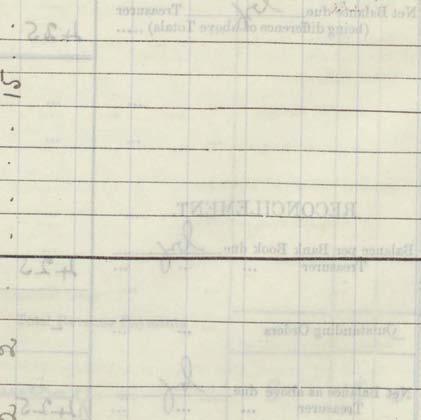 Net Balance due by Treasurer
(being difference of above Totals) ...... 425
15
RECONCILEMENT
Balance per Bank Book due by
Treasurer ... ... ... 425
Outstanding Orders ... ...
Net Balance as above due by
Treasurer ... ... ... 425